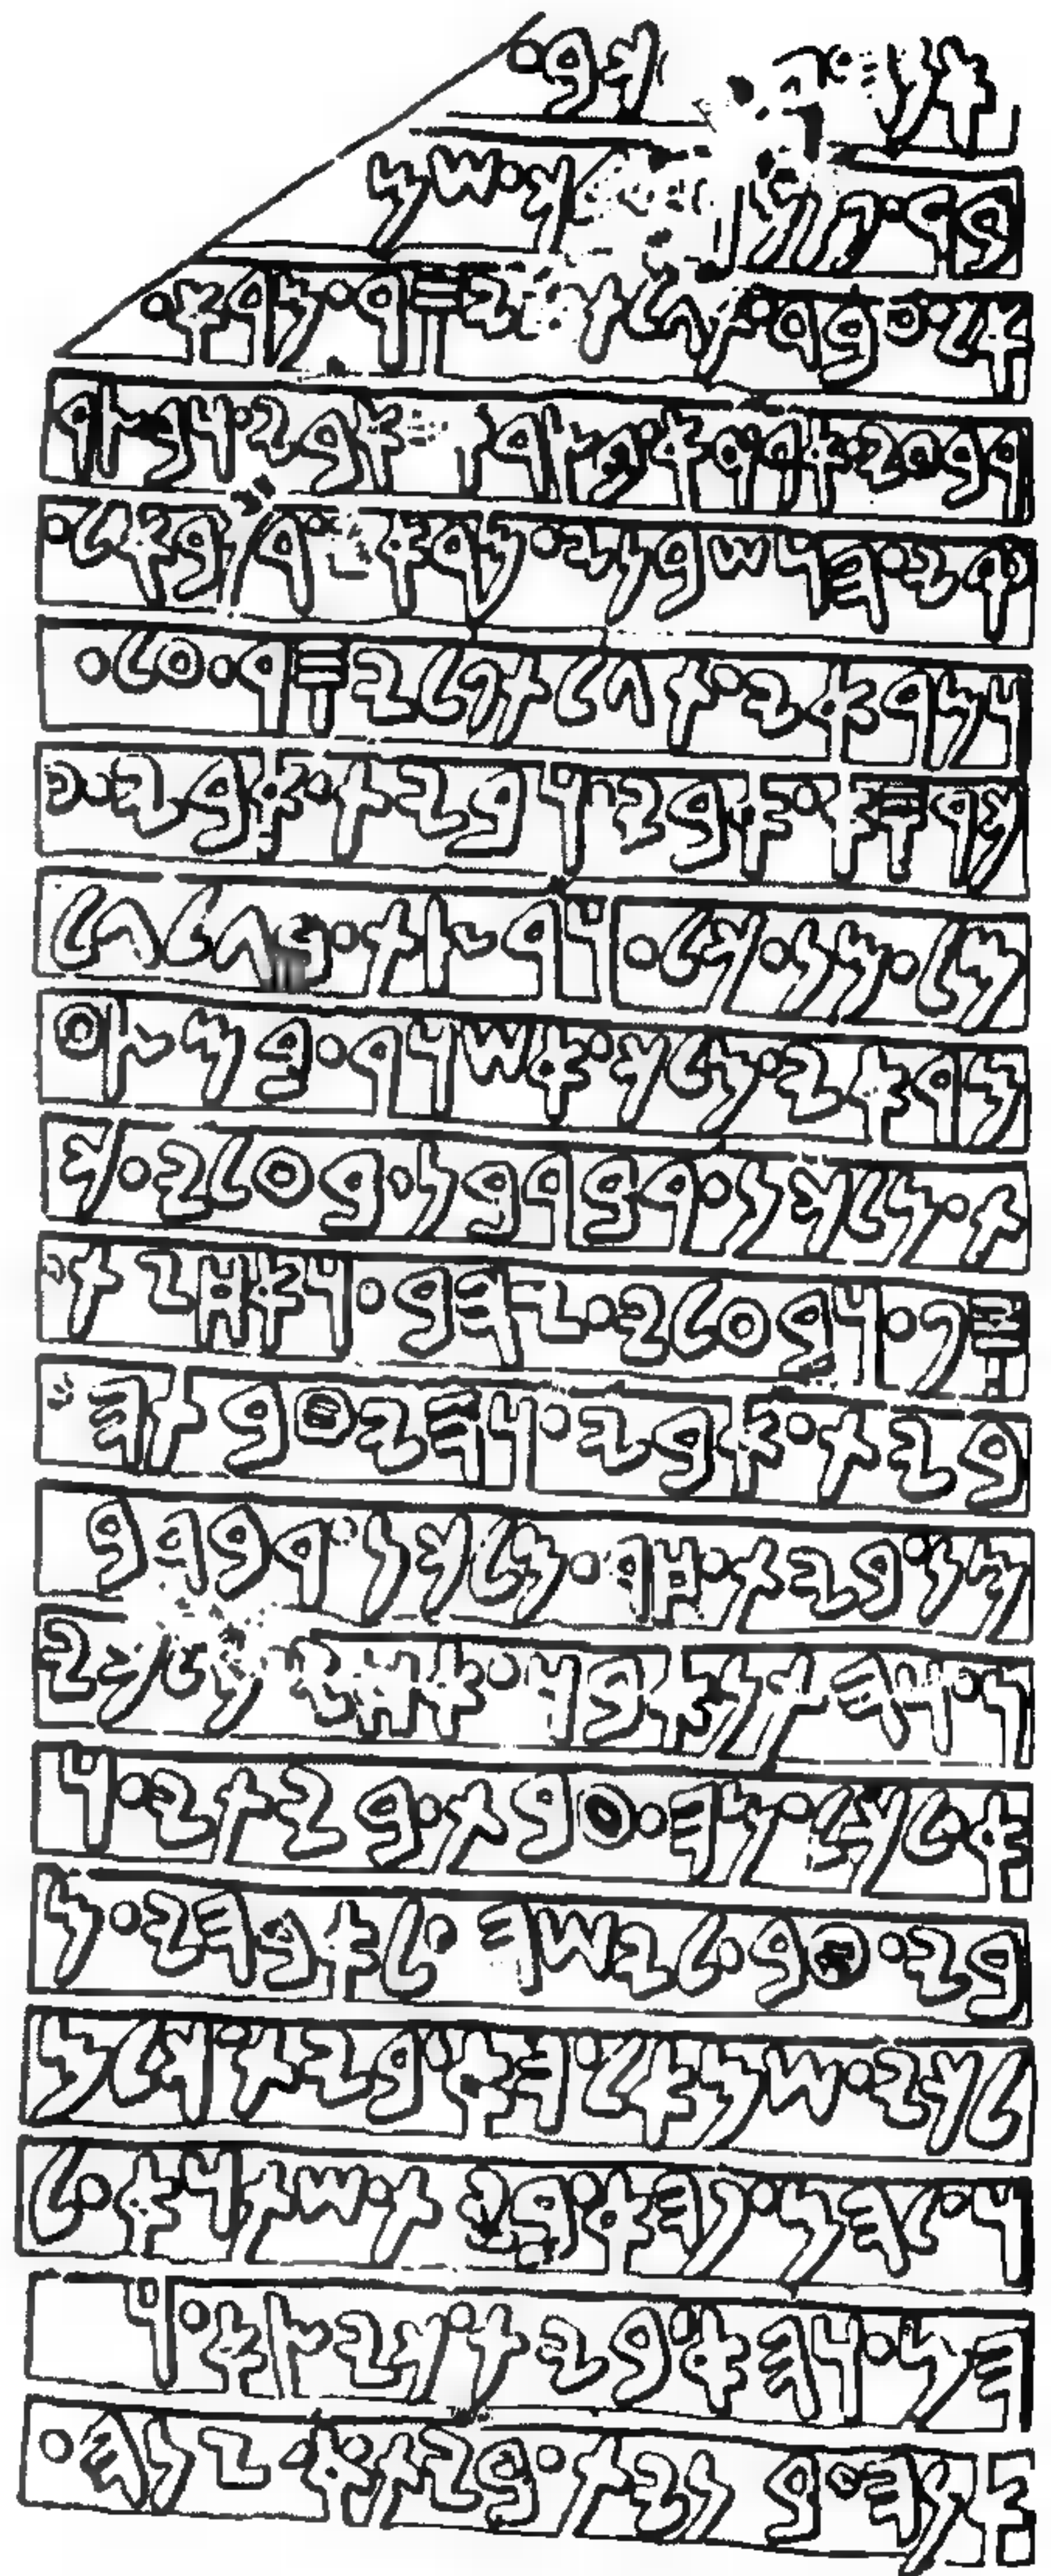 𐤀𐤍𐤄𐤟𐤁𐤓𐤓𐤊𐤁𐤟
𐤁𐤓𐤟𐤐𐤍𐤌𐤅𐤟𐤌𐤋𐤊𐤟𐤔𐤌
𐤀𐤋𐤟𐤏𐤁𐤃𐤟𐤕𐤂𐤋𐤕𐤐𐤋𐤉𐤎𐤓𐤟𐤌𐤓𐤀𐤟
𐤓𐤁𐤏𐤉𐤟𐤀𐤓𐤒𐤀𐤟𐤁𐤑𐤃𐤒𐤟𐤀𐤁𐤉𐤟𐤅𐤁𐤑𐤃
𐤒𐤉𐤟𐤄𐤅𐤔𐤁𐤍𐤉𐤟𐤌𐤓𐤀𐤉𐤟𐤓𐤊𐤁𐤀𐤋𐤟
𐤅𐤌𐤓𐤀𐤉𐤟𐤕𐤂𐤋𐤕𐤐𐤋𐤉𐤎𐤓𐤟𐤏𐤋𐤟
𐤊𐤓𐤎𐤀𐤟𐤀𐤁𐤉𐤟𐤅𐤁𐤉𐤕𐤟𐤀𐤁𐤉𐤟𐤏
𐤌𐤋𐤟𐤌𐤍𐤟𐤊𐤋𐤟𐤅𐤓𐤑𐤕𐤟𐤁𐤂𐤋𐤂𐤋
𐤌𐤓𐤀𐤉𐤟𐤌𐤋𐤊𐤟𐤀𐤔𐤅𐤓𐤟𐤁𐤌𐤑𐤏
𐤕𐤟𐤌𐤋𐤊𐤍𐤟𐤓𐤁𐤓𐤁𐤍𐤟𐤁𐤏𐤋𐤉𐤟𐤊
𐤎𐤐𐤟𐤅𐤁𐤏𐤋𐤉𐤟𐤆𐤄𐤁𐤟𐤅𐤀𐤇𐤆𐤕𐤟
𐤁𐤉𐤕𐤟𐤀𐤁𐤉𐤟𐤅𐤄𐤉𐤈𐤁𐤕𐤄𐤟
𐤌𐤍𐤟𐤁𐤉𐤕𐤟𐤇𐤃𐤟𐤌𐤋𐤊𐤍𐤟𐤓𐤁𐤓𐤁
𐤍𐤟𐤅𐤄𐤕𐤍𐤀𐤁𐤅𐤟𐤀𐤇𐤉𐤟𐤌𐤋𐤊𐤉
𐤀𐤟𐤋𐤊𐤋𐤟𐤌𐤄𐤟𐤈𐤁𐤕𐤟𐤁𐤉𐤕𐤉𐤟𐤅
𐤁𐤉𐤟𐤈𐤁𐤟𐤋𐤉𐤔𐤄𐤟𐤋𐤀𐤁𐤄𐤉𐤟𐤌
𐤋𐤊𐤉𐤟𐤔𐤌𐤀𐤋𐤟𐤄𐤀𐤟𐤁𐤉𐤕𐤟𐤊𐤋𐤌
𐤅𐤟𐤋𐤄𐤌𐤟𐤐𐤄𐤀𐤟𐤁𐤉𐤕𐤟𐤔𐤕𐤅𐤀𐤟𐤋
𐤄𐤌𐤟𐤅𐤄𐤀𐤟𐤁𐤉𐤕𐤟𐤊𐤉𐤑𐤀𐤟𐤅
𐤀𐤍𐤄𐤟𐤁𐤍𐤉𐤕𐤟𐤁𐤉𐤕𐤀𐤟𐤆𐤍𐤄𐤟